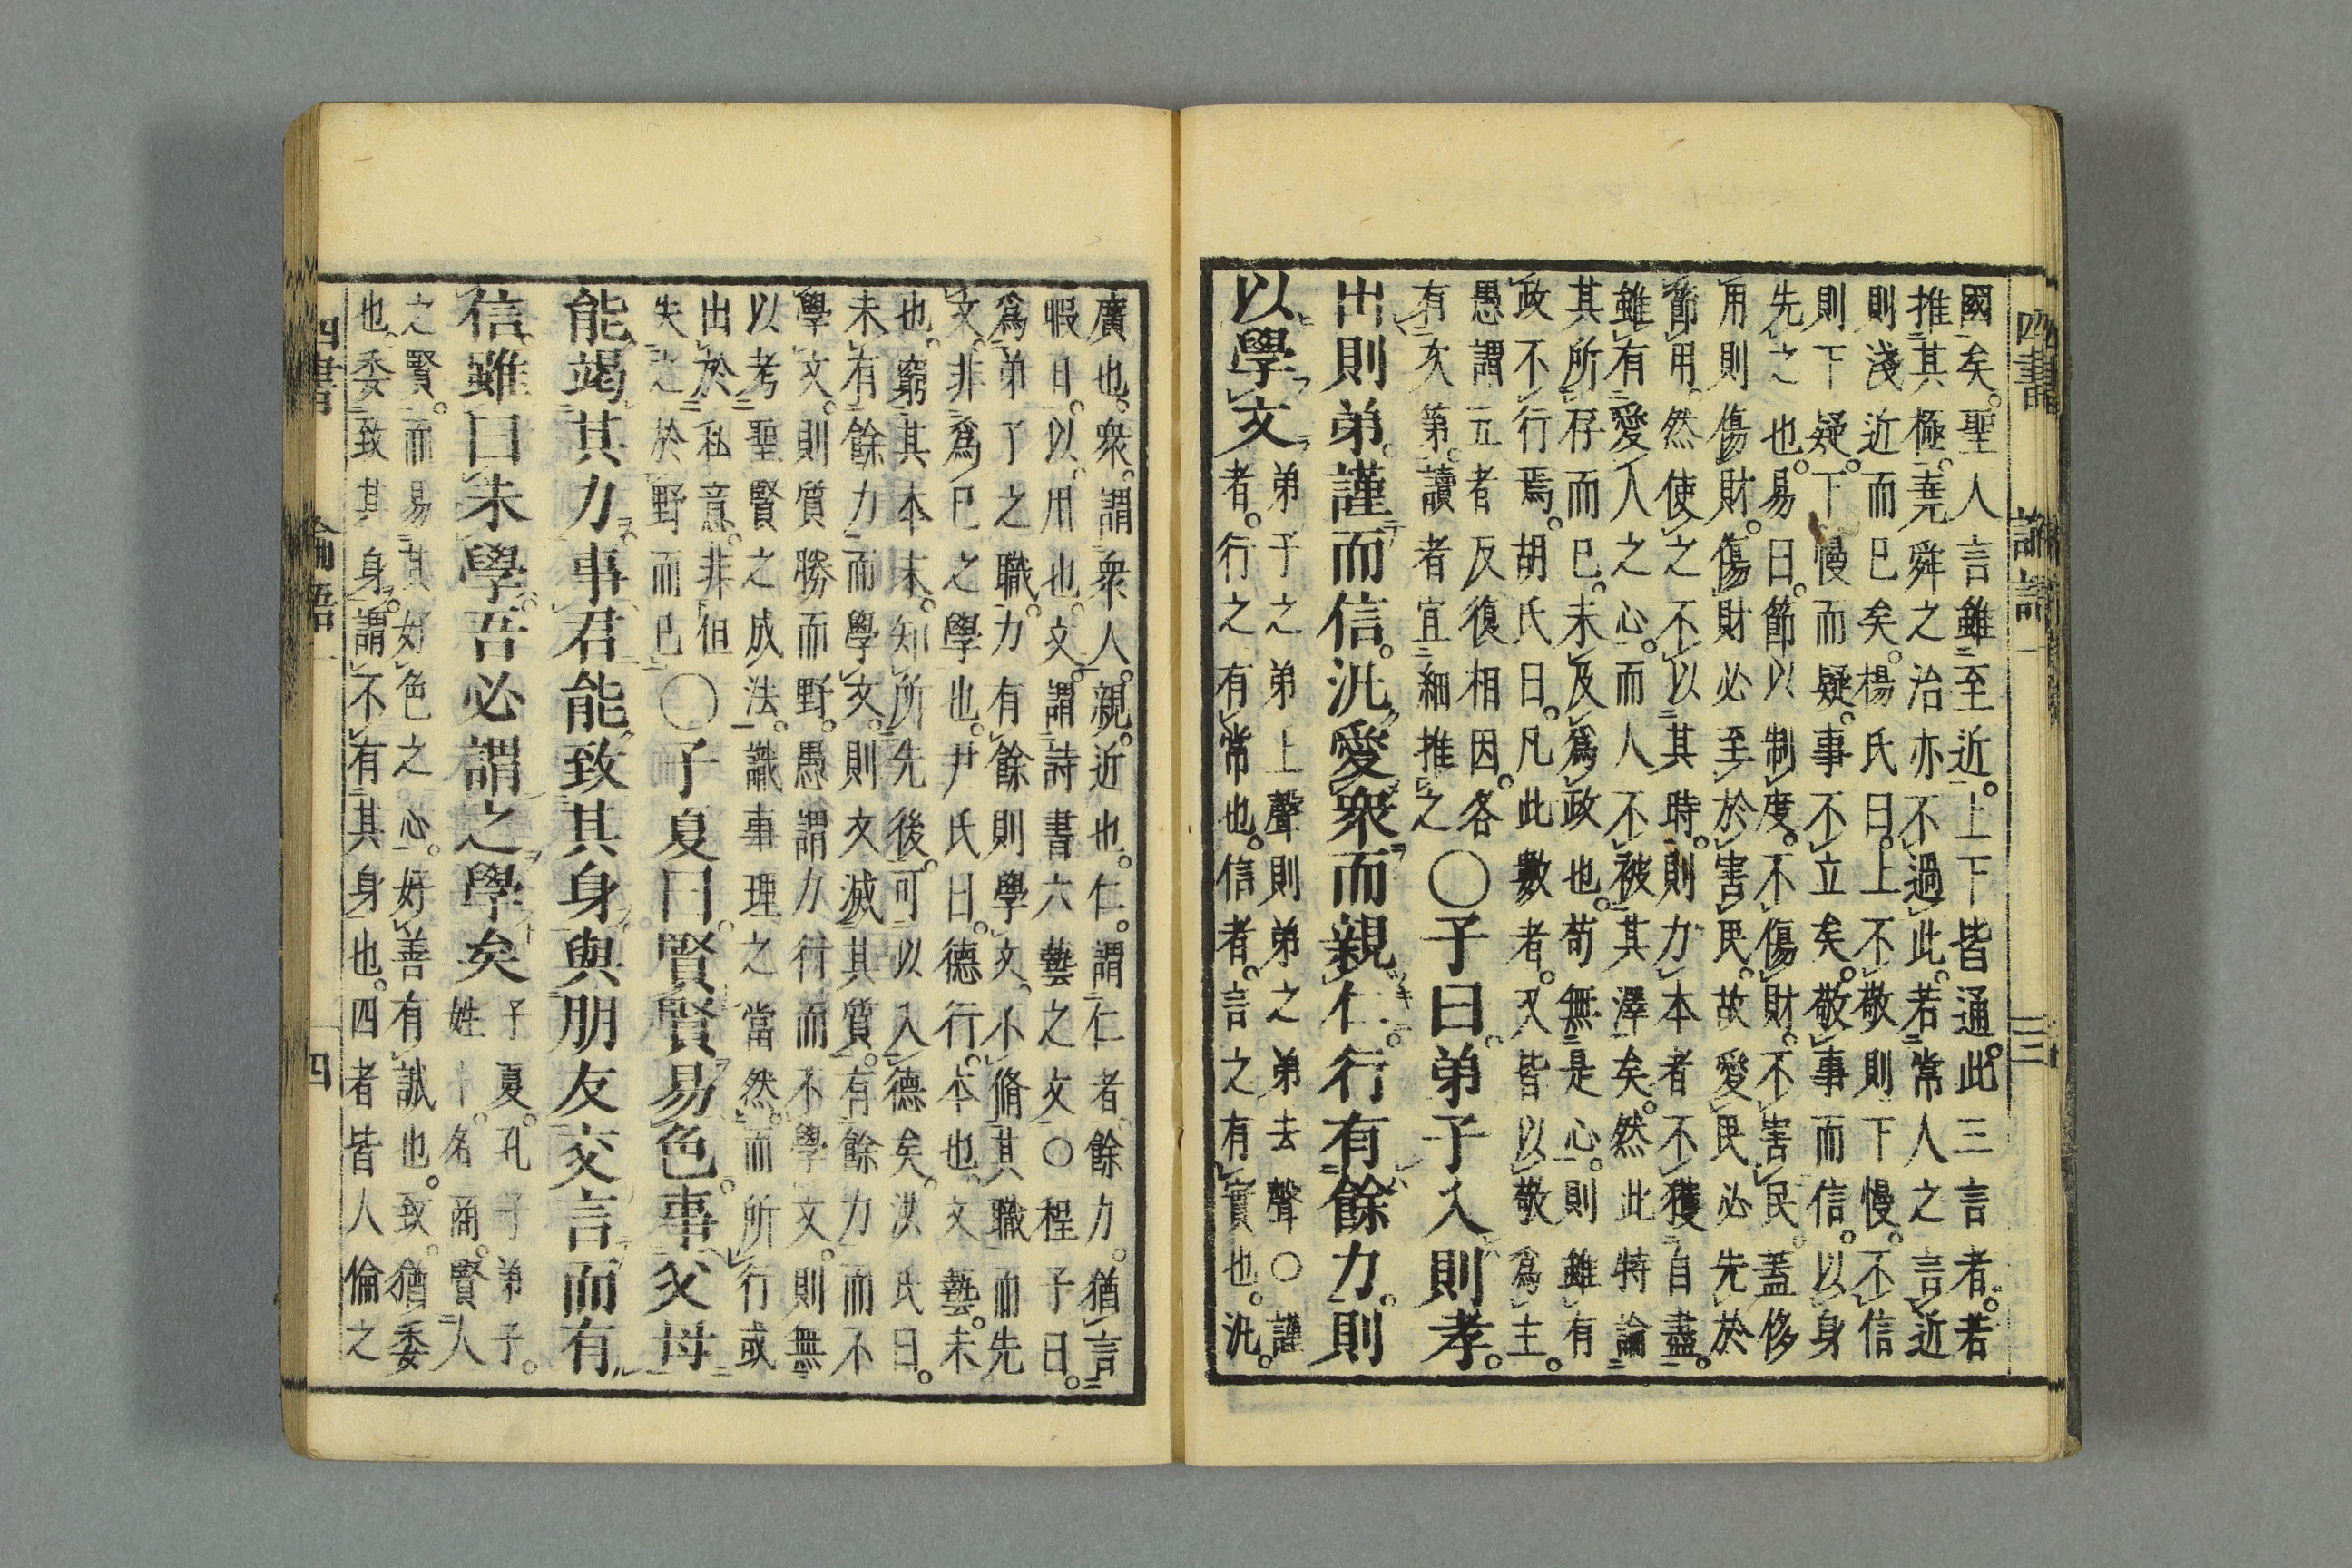 四書 論語一 三
國矣。聖人言雖至近。上下皆通。此三言者。若
推其極。堯舜之治亦不過此。若常人之言近
則淺近而已矣。楊氏曰。上不敬則下慢。不信
則下疑。下慢而疑。事不立矣。敬事而信。以身
先之也。易曰。節以制度。不傷財。不害民。蓋侈
用則傷財。傷財必至於害民。故愛民必先於
節用。然使之不以其時。則力本者不獲自盡。
雖有愛人之心。而人不被其澤矣。然此特論
其所存而已。未及爲政也。苟無是心。則雖有
政不行焉。胡氏曰。凡此數者。又皆以敬爲主。
愚謂五者反復相因。各
有次第。讀者宜細推之
○子曰。弟子入則孝。
出則弟。謹而信。汎愛衆而親仁。行有餘力。則
以學文
弟子之弟上聲則弟之弟去聲○謹
者。行之有常也。信者。言之有實也。汎。
廣也。衆。謂衆人。親。近也。仁。謂仁者。餘力。猶言
暇日。以。用也。文。謂詩書六藝之文○程子曰。
爲弟子之職。力有餘則學文。不脩其職而先
文。非爲已之學也。尹氏曰。德行。本也。文藝。末
也。窮其本末。知所先後。可以入德矣。洪氏曰。
未有餘力而學文。則文滅其質。有餘力而不
學文。則質勝而野。愚謂力行而不學文。則無
以考聖賢之成法。識事理之當然。而所行或
出於私意。非但
失之於野而已
○子夏曰。賢賢易色。事父母
能竭其力。事君能致其身。與朋友交言而有
信。雖曰未學。吾必謂之學矣
子夏。孔子弟子。
姓卜。名商。賢人
之賢。而易其好色之心。好善有誠也。致。猶委
也。委致其身。謂不有其身也。四者皆人倫之
四書 論語一 四